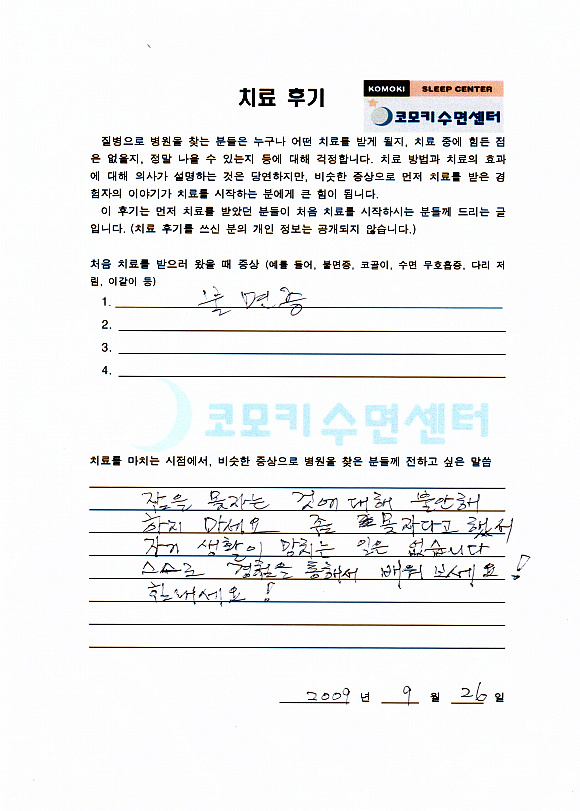 치료 후기
KOMOKI SLEEP CENTER
코모키수면센터
질병으로 병원을 찾는 분들은 누구나 어떤 치료를 받게 될지, 치료 중에 힘든 점
은 없을지, 정말 나을 수 있는지 등에 대해 걱정합니다. 치료 방법과 치료의 효과
에 대해 의사가 설명하는 것은 당연하지만, 비슷한 증상으로 먼저 치료를 받은 경
험자의 이야기가 치료를 시작하는 분에게 큰 힘이 됩니다.
이 후기는 먼저 치료를 받았던 분들이 처음 치료를 시작하시는 분들께 드리는 글
입니다. (치료 후기를 쓰신 분의 개인 정보는 공개되지 않습니다.)
처음 치료를 받으러 왔을 때 증상 (예를 들어, 불면증, 코골이, 수면 무호흡증, 다리 저
림, 이갈이 등)
1. 불면증
2.
3.
4.
코모키수면센터
치료를 마치는 시점에서, 비슷한 증상으로 병원을 찾은 분들께 전하고 싶은 말씀
잠을 못자는 것에 대해 불안해
하지 마세요 좀 못자다고 했서
자기 생활이 망치는 일은 없습니다
스스로 경험을 통해서 배워 보세요!
힘내세요!
2009 년 9 월 26 일